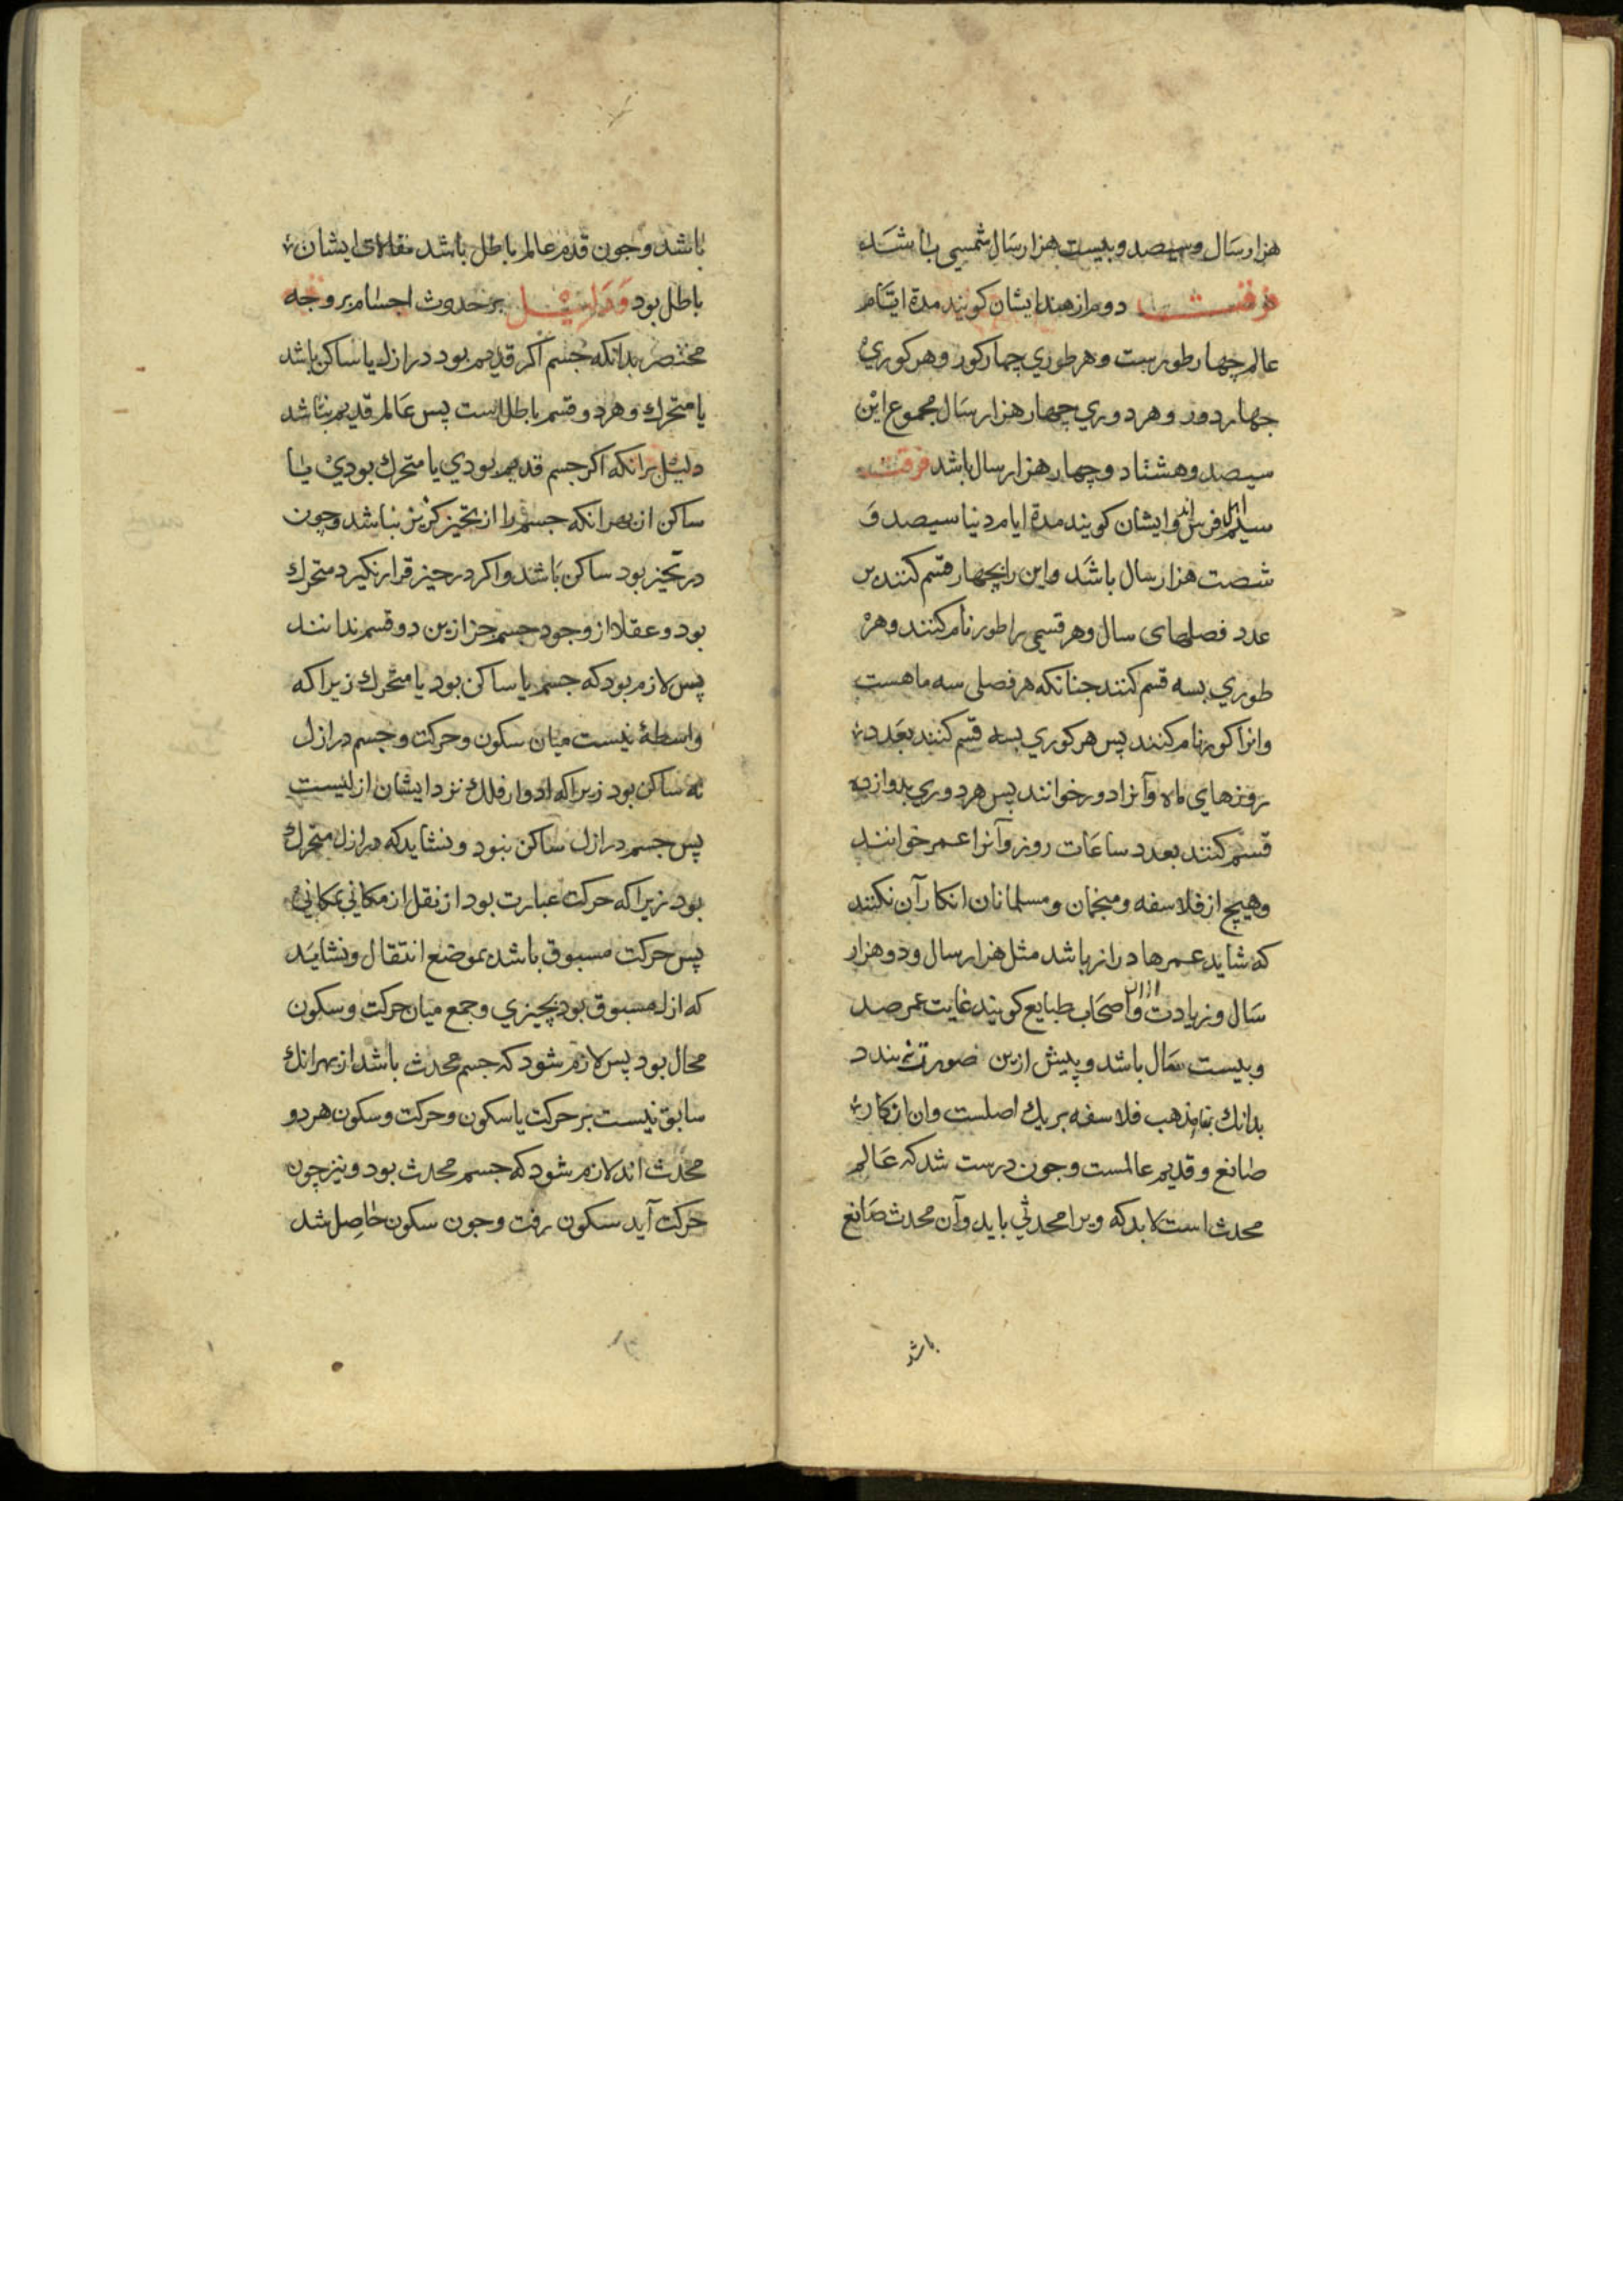 هزار سال و سیصد و بیست هزار سال شمسی باشد
فرقت دوم از هند ایشان کویند مدة ایام
عالم چهار طورست و هر طوري چهار کور و هر کوري
جهار دور و هر دوري چهار هزار سال مجموع این
سیصد و هشتاد و چهار هزار سال باشد فرقت
سیم اهل فرس اند و ایشان کویند مدة ایام دنیا سیصد و
شصت هزار سال باشد و این را بچهار قسم کنند بر
عدد فصلهای سال و هر قسمی را طور نام کنند و هر
طوري بسه قسم کنند جنانکه هر فصلی سه ماهست
وانرا کور نام کنند پس هر کوري بسه قسم کنند بعدد
روزهاي ماه وآنرا دور خوانند پس هر دوري بدوازده
قسم کنند بعدد ساعات روز وآنرا عمر خوانند
وهیچ از فلاسفه و منجمان و مسلمانان انکار آن نکنند
که شاید عمرها دراز باشد مثل هزار سال و دو هزار
سال و زیادت ازان و اصحاب طبایع کویند غایت عمر صد
و بیست سال باشد و پیش ازین صورت نبندد
بدانك بناء مذهب فلاسفه بر یك اصلست وان انکار
صانع و قدیم عالمست و جون درست شد که عالم
محدث است لابد که ویرا محدثي باید وآن محدث صانع
باشد
باشد و جون قدم عالم باطل باشد مقالات ایشان
باطل بود و دلیل بر حدوث اجسام بر وجه
مختصر بدانکه جسم اکر قدیم بود در ازل یا ساکن باشد
یا متحرك و هر دو قسم باطلست پس عالم قدیم نباشد
دلیل برانکه اکر جسم قدیم بودي یا متحرك بودي یا
ساکن از بهر انکه جسم را از تحیز کریز نباشد و چون
در تحیز بود ساکن باشد و اکر در حیز قرار نکیرد متحرك
بود و عقلا از وجود جسم جز ازین دو قسم ندانند
پس لازم بود که جسم یا ساکن بود یا متحرك زیرا که
واسطۀ نیست میان سکون و حرکت و جسم در ازل
نه ساکن بود زیرا که ادوار فلك نزد ایشان ازلیست
پس جسم در ازل ساکن نبود و نشاید که در ازل متحرك
بود زیرا که حرکت عبارت بود از نقل از مکاني بمکاني
پس حرکت مسبوق باشد بموضع انتقال و نشاید
که ازل مسبوق بود بچیزي و جمع میان حرکت و سکون
محال بود پس لازم شود که جسم محدث باشد از بهر انك
سابق نیست بر حرکت یا سکون و حرکت و سکون هر دو
محدث اند لازم شود که جسم محدث بود و نیز چون
حرکت آید سکون رفت و جون سکون حاصل شد